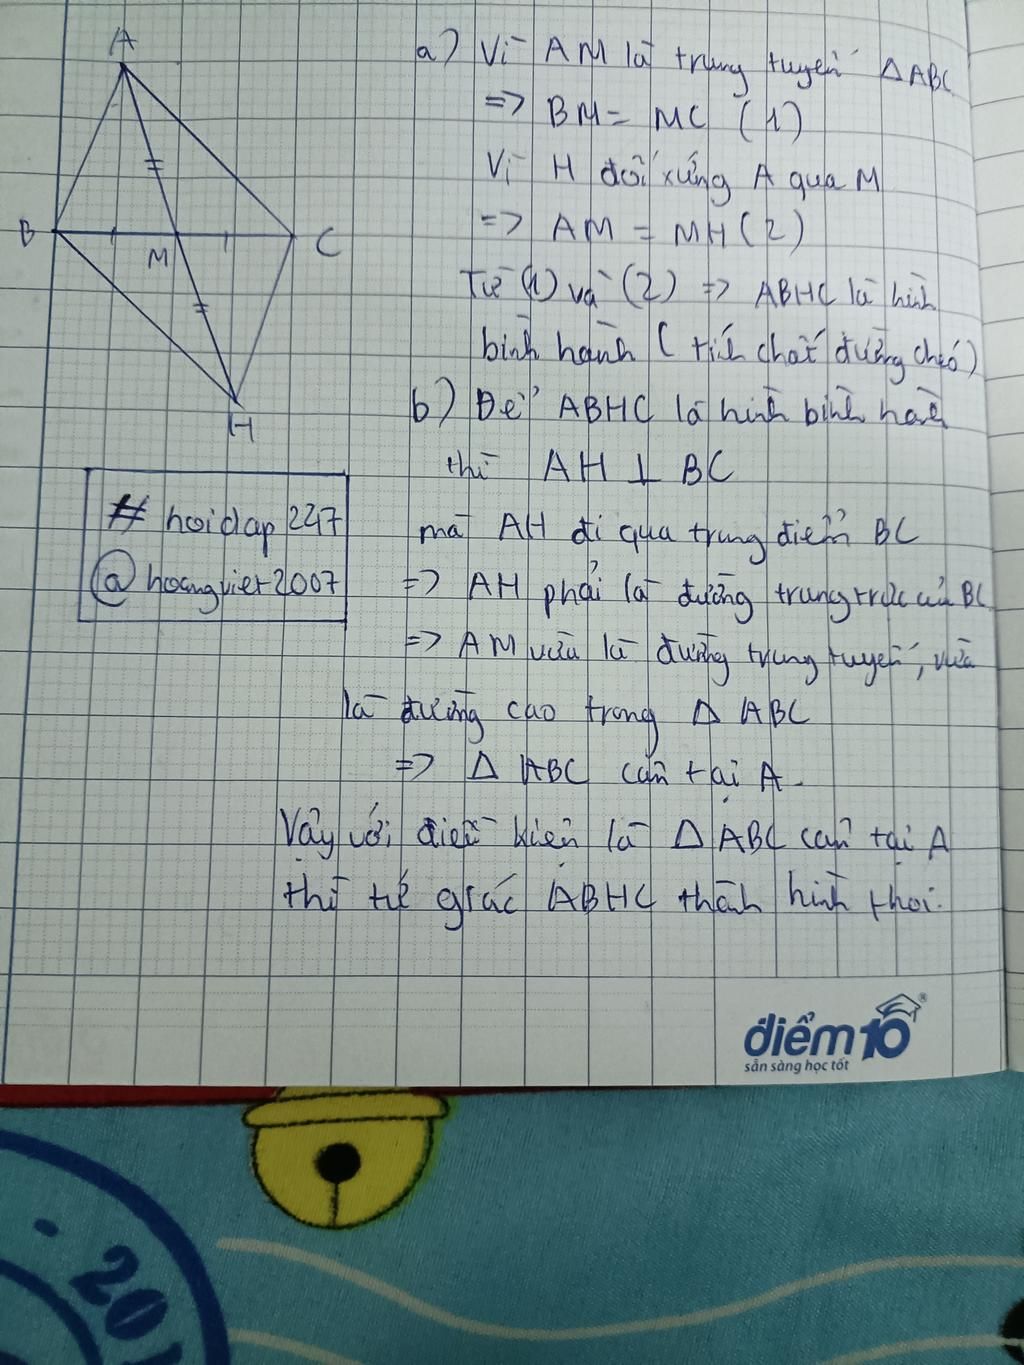 A
B
M
C
H
a) Vì AM là trung tuyến ΔABC
=> BM = MC (1)
Vì H đối xứng A qua M
=> AM = MH (2)
Từ (1) và (2) => ABHC là hình
bình hành ( tính chất đường chéo)
b) Để ABHC là hình bình hành
thì AH ⊥ BC
mà AH đi qua trung điểm BC
=> AH phải là đường trung trực của BC
=> AM vừa là đường trung tuyến, vừa
là đường cao trong Δ ABC
=> Δ ABC cân tại A
Vậy với điều kiện là Δ ABC cân tại A
thì tứ giác ABHC thành hình thoi.
# hoidap247
@hoangviet2007
điểm10®
sẵn sàng học tốt
201